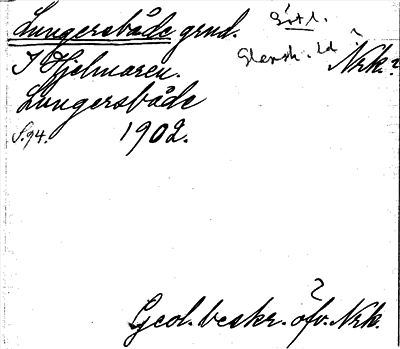 Lungersbåde grnd. Sörl.
Glansh. Ld ? Nrk.?
I Hjelmaren.
Lungersbåde
S.94. 1902.
?
Geol. beskr. öfv. Nrk.